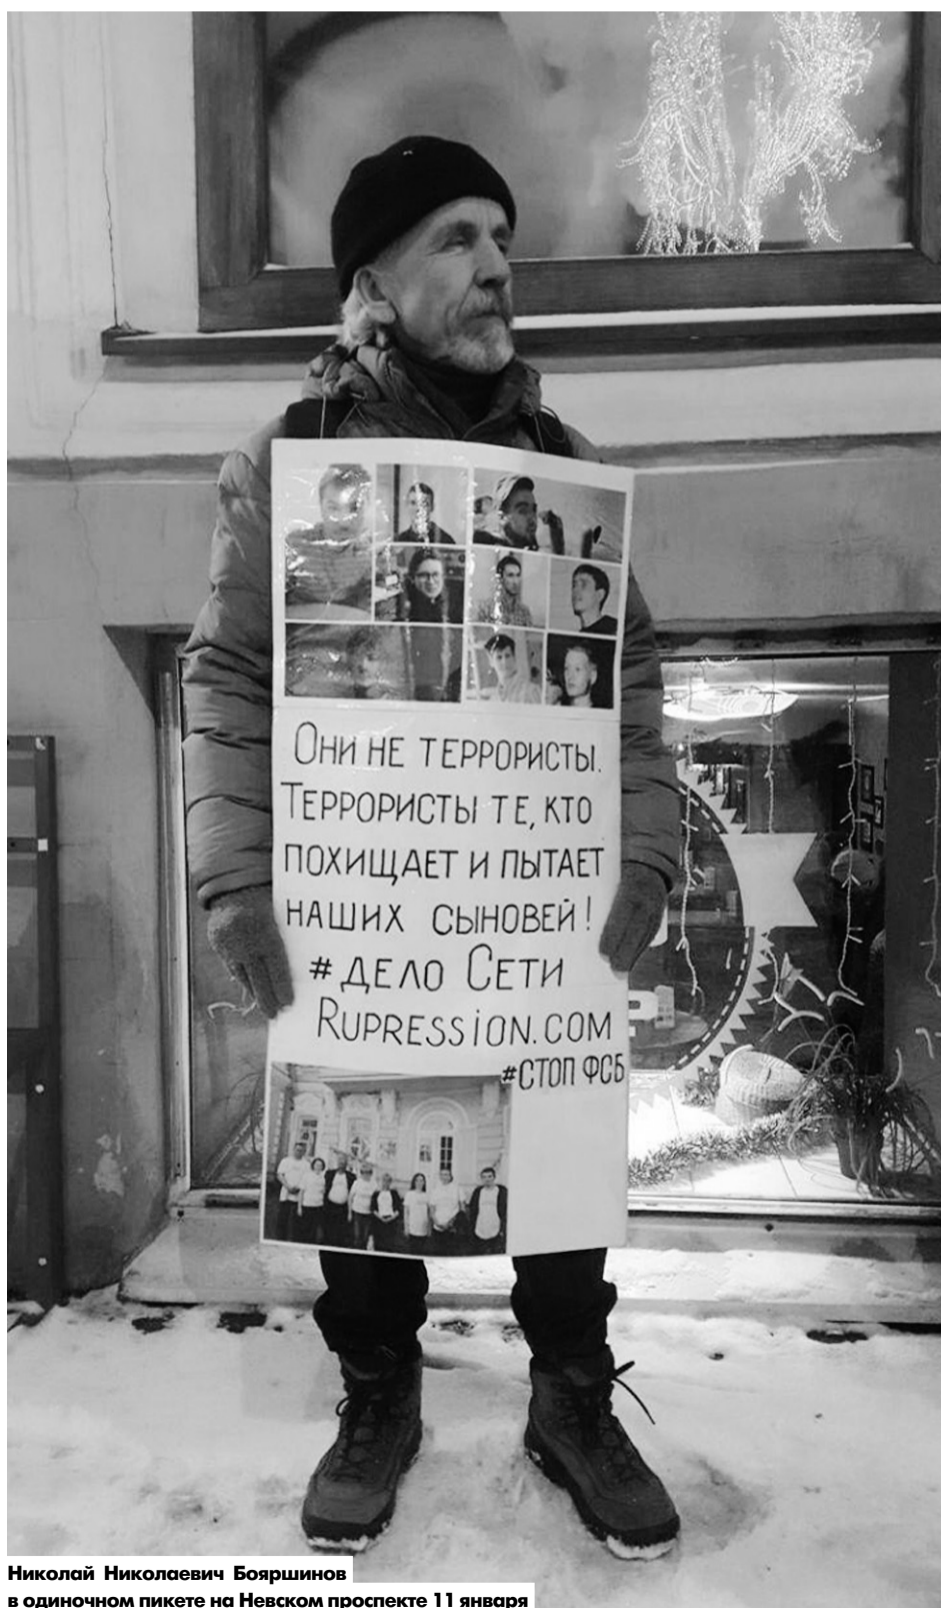 Они не террористы.
Террористы те, кто
похищает и пытает
наших сыновей!
#дело Сети
Rupression.com
#стоп ФСБ
Николай Николаевич Бояршинов
в одиночном пикете на Невском проспекте 11 января